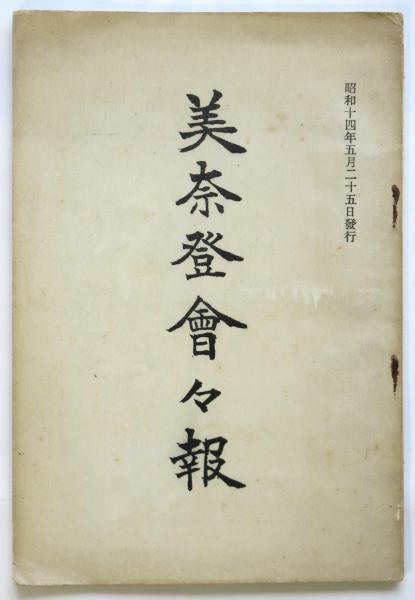 昭和十四年五月二十五日發行
美奈登會々報